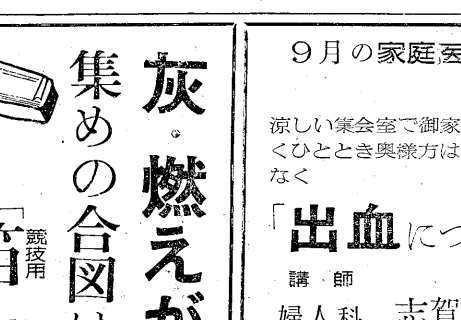 灰・燃えが
集めの合図は
競技用
9月の家庭医
涼しい集会室で御家
くひととき奥様方は
なく
「出血につ
講師
婦人科 志賀